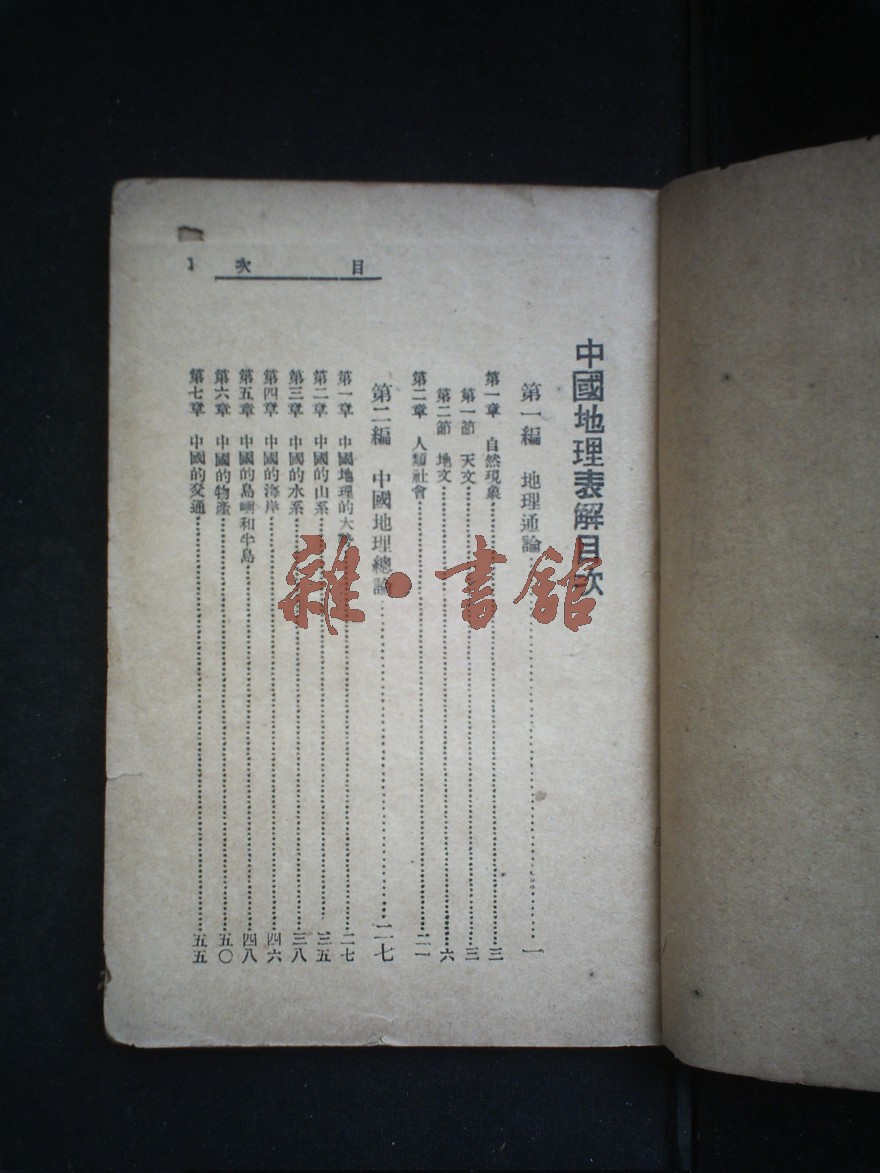 目次 1
中國地理表解目次
第一編 地理通論……一
第一章 自然現象……三
第一節 天文……三
第二節 地文……六
第二章 人類社會……二一
第二編 中國地理總論……二七
第一章 中國地理的大……二七
第二章 中國的山系……三五
第三章 中國的水系……三八
第四章 中國的海岸……四六
第五章 中國的島嶼和半島……四八
第六章 中國的物產……五〇
第七章 中國的交通……五五
雜·書館